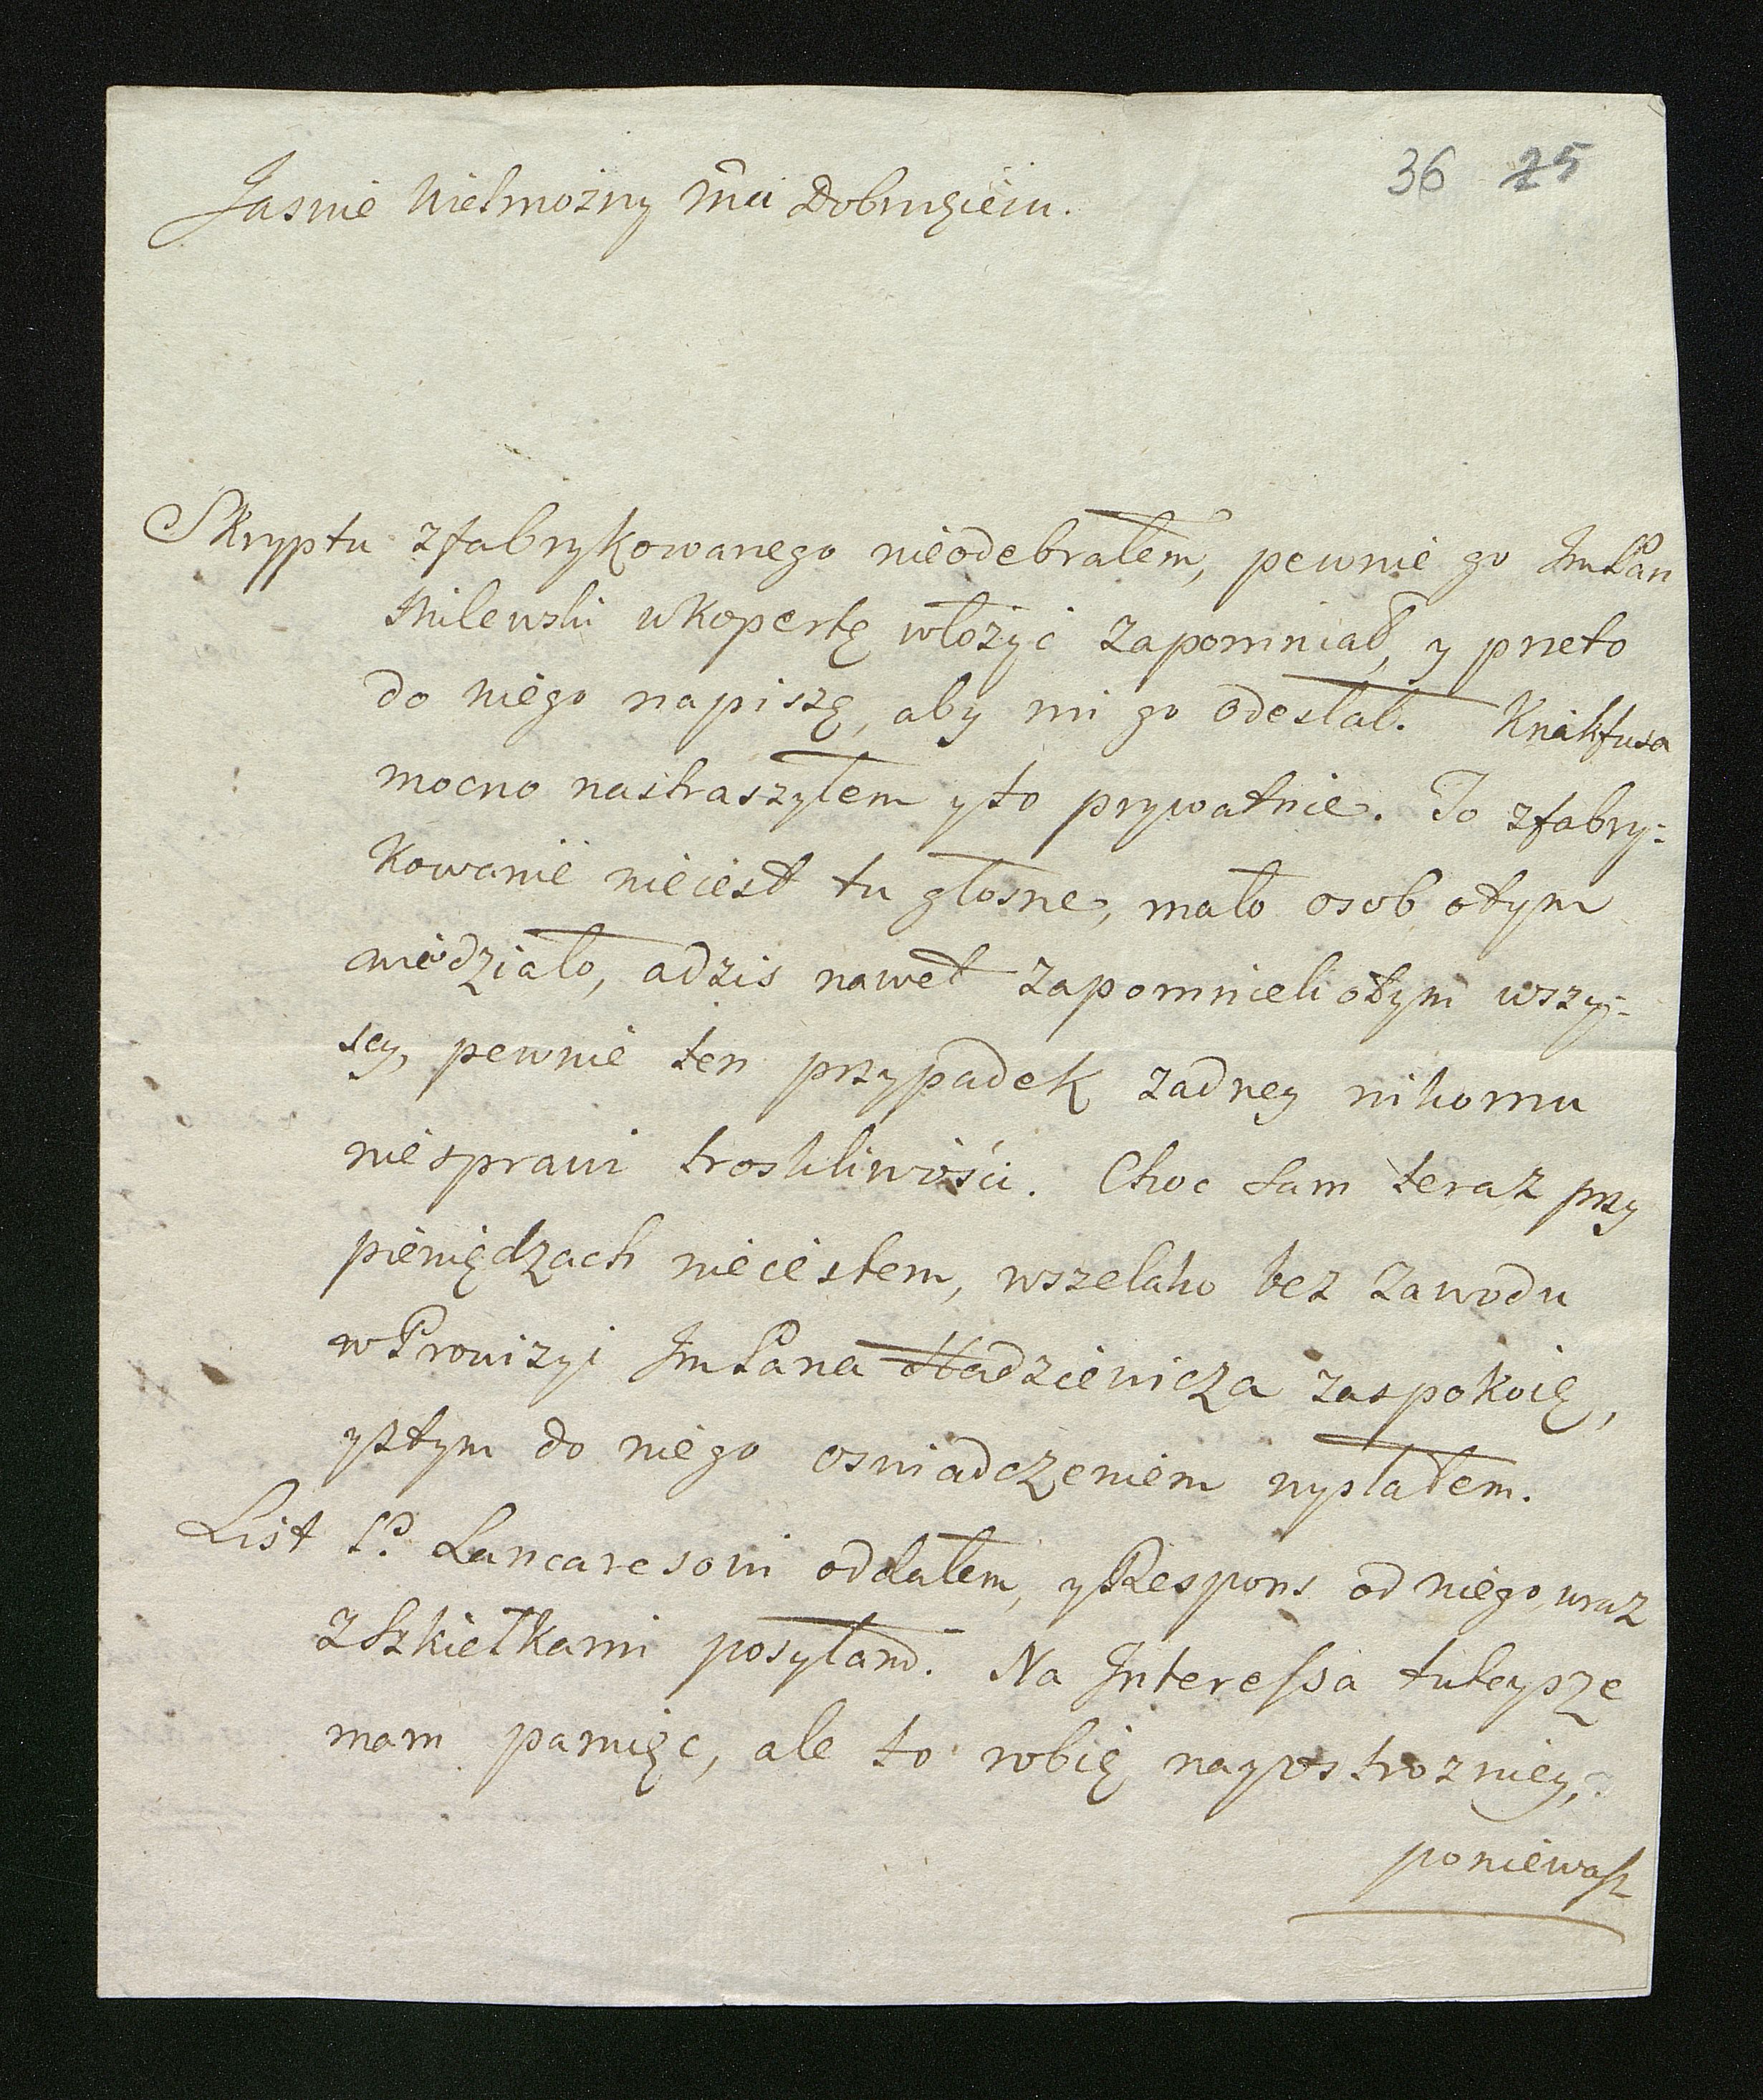 36 25
Jasnie Wielmożny Mci Dobrodzieiu.
Skryptu zfabrykowanego nieodebrałem, pewnie go ImPan
Milewski wkopertę włożyć zapomniał, y przeto
do niego napiszę, aby mi go odesłał. Knakfusa
mocno nastraszyłem yto prywatnie. To zfabry:
kowanie nieiest tu głosne, mało osob otym
wiedziało, adzis nawet zapomnieli otym wszy:
scy, pewnie ten przypadek zadney nikomu
niesprawi troskliwości. Choc sam teraz przy
pieniędzach nieiestem, wszelako bez zawodu
wProwizyi ImPana Hadziewicza zaspokoię,
yztym do niego oswiadczeniem wysłałem.
List P. Lancaresowi oddałem, yRespons od niego, wraz
zSzkiełkami posyłam. Na Interessa tuteysze
mam pamięc, ale to robię nayostrozniey,
poniewasz